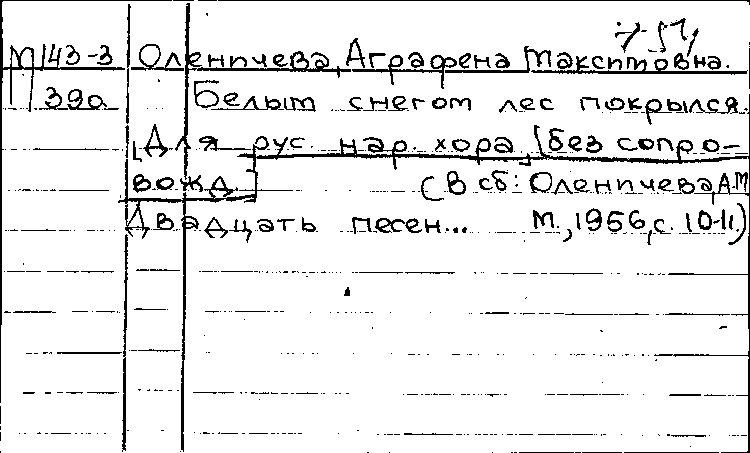 М143-3 Оленичева, Аграфена Максимовна.
39а Белым снегом лес покрылся.
[Для рус. нар. хора, [без сопро-
вожд.] (В сб: Оленичева, А.М
Двадцать песен... М., 1956, с. 10-11.)